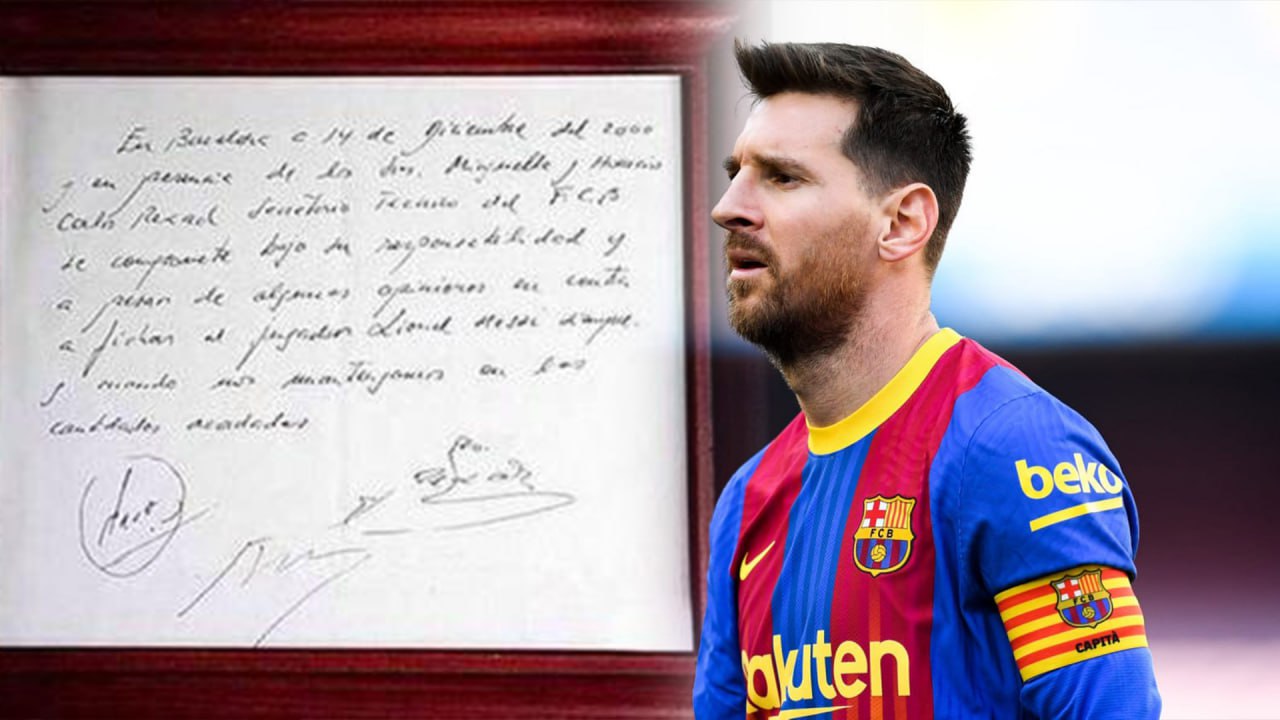 En Barcelona a 14 de Diciembre del 2000
y en presencia de los Sres. Minguella y Horacio
Carlos Rexach Secretario Técnico del F.C.B
se compromete bajo su responsabilidad y
a pesar de algunas opiniones en contra
a fichar al jugador Lionel Messi siempre
y cuando nos mantengamos en las
cantidades acordadas
beko
FCB
FCB
CAPITÀ
Rakuten